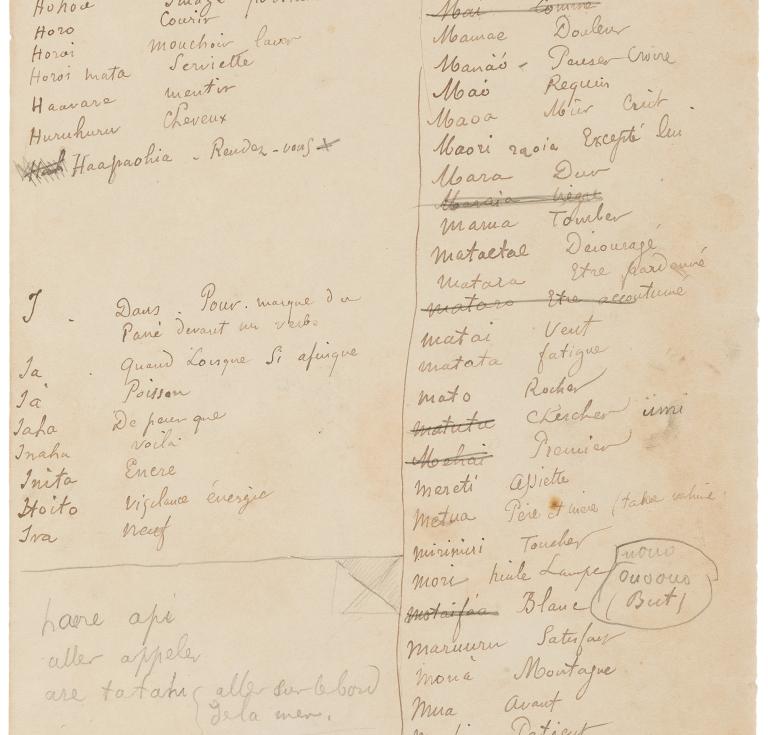 Horo Courir
Horoi mouchoir laver
Horoi mata Serviette
Haavare mentir
Huruhuru Cheveux
Haapaohia - Rendez-vous
I Dans. Pour. marque du
Passé devant un verbe
Ia Quand Lorsque Si afinque
Ia Poisson
Iaha De peur que
Inaha voilà
Inita Encre
Itoito Vigilance énergie
Iva neuf
haere api
aller appeler
are tatahi (aller sur le bord
de la mer.
Mai Comme
Mamae Douleur
Manaó - Penser Croire
Maó Requin
Maoa Mûr Cuit
Maori raoia Excepté lui
Mara Dur
Maraia nègre
Maua Tomber
mataetae Découragé
matara Etre pardonné
mataro Etre accoutumé
matai Vent
matata fatigue
mato Rocher
matutu Chercher iimi
Mehai Premier
mereti Assiette
Metua Père et mère (tane vahine
mirimiri Toucher
mori huile Lampe
Blanc
ouoouo
(But)
maruuru Satisfait
moua Montagne
Mua Avant